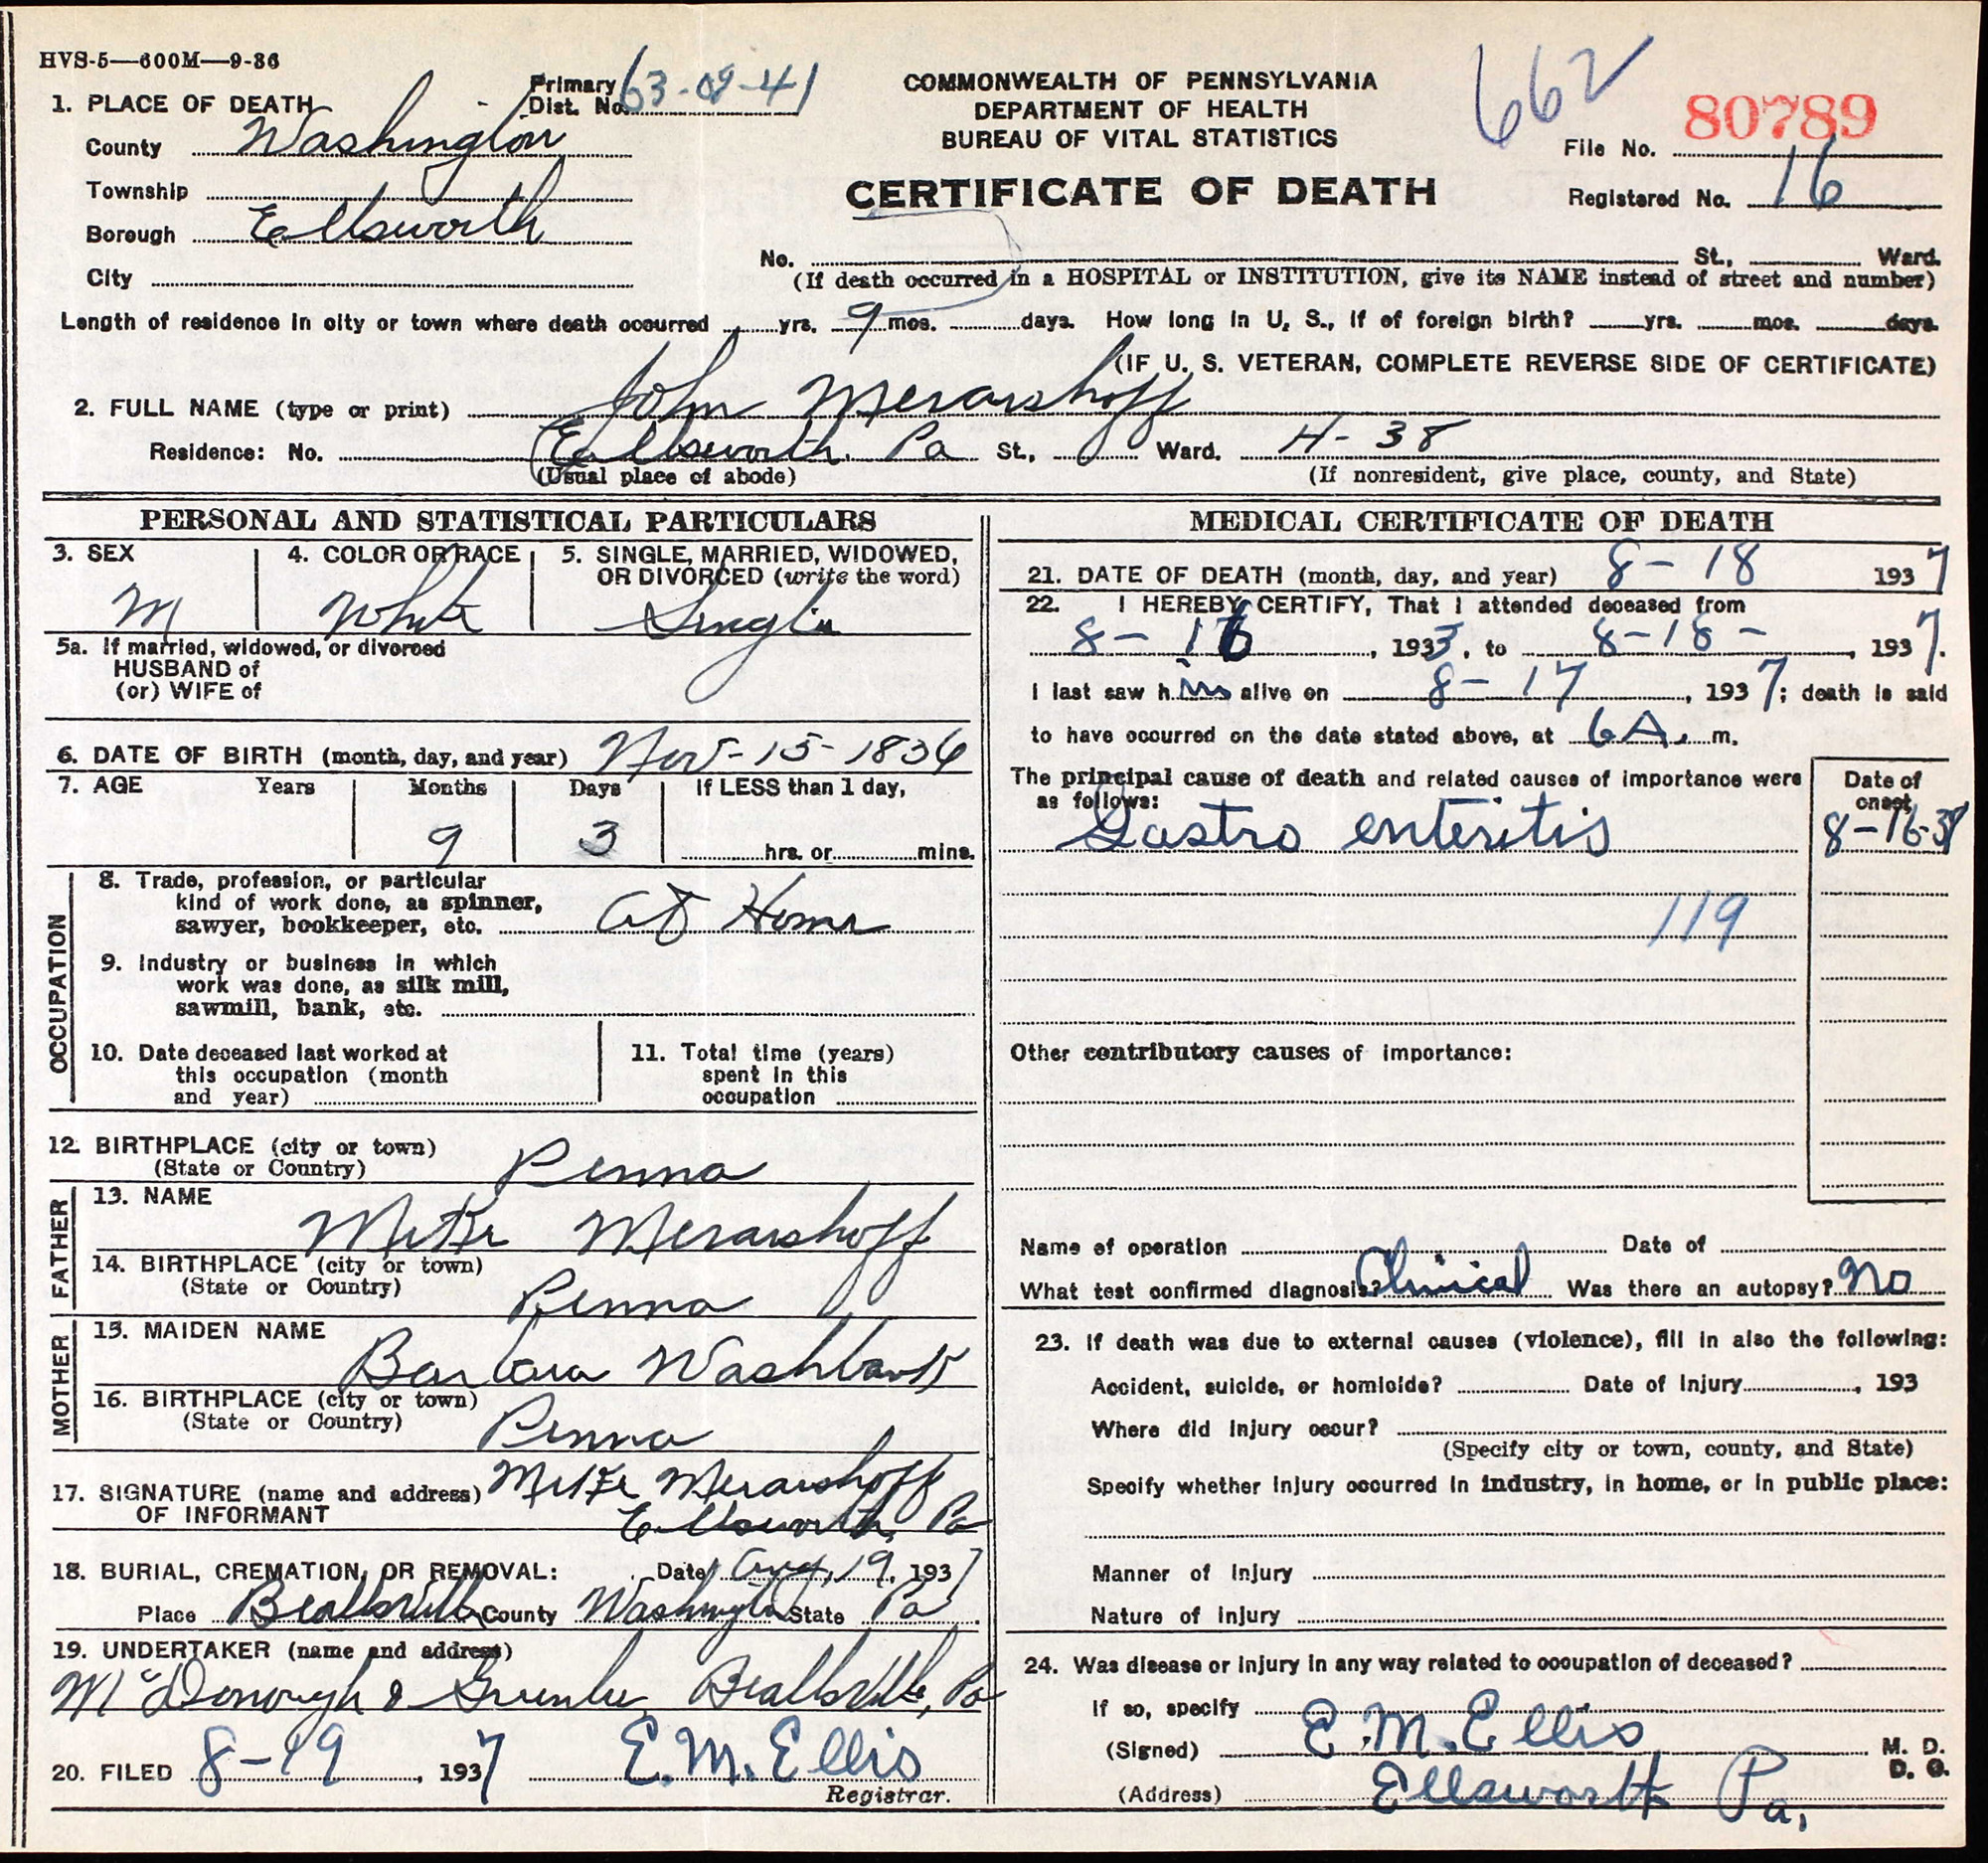 HVS-5—600M—9-36
Primary Dist. No. 63-09-41
COMMONWEALTH OF PENNSYLVANIA
DEPARTMENT OF HEALTH
BUREAU OF VITAL STATISTICS
CERTIFICATE OF DEATH
662
File No. 80789
Registered No. 16
1. PLACE OF DEATH
County Washington
Township
Borough Ellsworth
City
No. St., Ward.
(If death occurred in a HOSPITAL or INSTITUTION, give its NAME instead of street and number)
Length of residence in city or town where death occurred yrs. 9 mos. days. How long in U. S., if of foreign birth? yrs. mos. days.
(IF U. S. VETERAN, COMPLETE REVERSE SIDE OF CERTIFICATE)
2. FULL NAME (type or print) John Merarshoff
Residence: No. Ellsworth, Pa St., Ward. H-38
(Usual place of abode) (If nonresident, give place, county, and State)
PERSONAL AND STATISTICAL PARTICULARS
3. SEX 4. COLOR OR RACE 5. SINGLE, MARRIED, WIDOWED,
OR DIVORCED (write the word)
M White Single
5a. If married, widowed, or divorced
HUSBAND of
(or) WIFE of
6. DATE OF BIRTH (month, day, and year) Nov-15-1836
7. AGE Years Months Days If LESS than 1 day,
9 3 hrs. or mins.
OCCUPATION
8. Trade, profession, or particular
kind of work done, as spinner,
sawyer, bookkeeper, etc. At Home
9. Industry or business in which
work was done, as silk mill,
sawmill, bank, etc.
10. Date deceased last worked at
this occupation (month
and year)
11. Total time (years)
spent in this
occupation
12. BIRTHPLACE (city or town)
(State or Country) Penna
FATHER
13. NAME
Merarshoff
14. BIRTHPLACE (city or town)
(State or Country) Penna
MOTHER
15. MAIDEN NAME
Barbara
16. BIRTHPLACE (city or town)
(State or Country) Penna
17. SIGNATURE (name and address) Merarshoff
OF INFORMANT Ellsworth, Pa
18. BURIAL, CREMATION, OR REMOVAL: Date Aug. 19, 1937
Place Beallsville County Washington State Pa
19. UNDERTAKER (name and address)
McDonough & Greenlee, Beallsville, Pa
20. FILED 8-19, 1937 E.M. Ellis
Registrar.
MEDICAL CERTIFICATE OF DEATH
21. DATE OF DEATH (month, day, and year) 8-18 1937
22. I HEREBY CERTIFY, That I attended deceased from
8-16, 1937, to 8-18-, 1937.
I last saw him alive on 8-17, 1937; death is said
to have occurred on the date stated above, at 6 A. m.
The principal cause of death and related causes of importance were
as follows:
Date of
onset
Gastro enteritis 8-16-37
119
Other contributory causes of importance:
Name of operation Date of
What test confirmed diagnosis? Clinical Was there an autopsy? No
23. If death was due to external causes (violence), fill in also the following:
Accident, suicide, or homicide? Date of injury , 193
Where did injury occur?
(Specify city or town, county, and State)
Specify whether injury occurred in industry, in home, or in public place:
Manner of injury
Nature of injury
24. Was disease or injury in any way related to occupation of deceased?
If so, specify
(Signed) E.M. Ellis M. D.
D. O.
(Address) Ellsworth Pa.